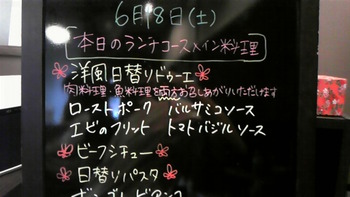 6月8日(土)
本日のランチコースメイン料理
洋風日替りドゥーエ
肉料理・魚料理を両方お召しあがりいただけます
ローストポーク バルサミコソース
エビのフリット トマトバジルソース
ビーフシチュー
日替りパスタ
ボンゴレビアンコ